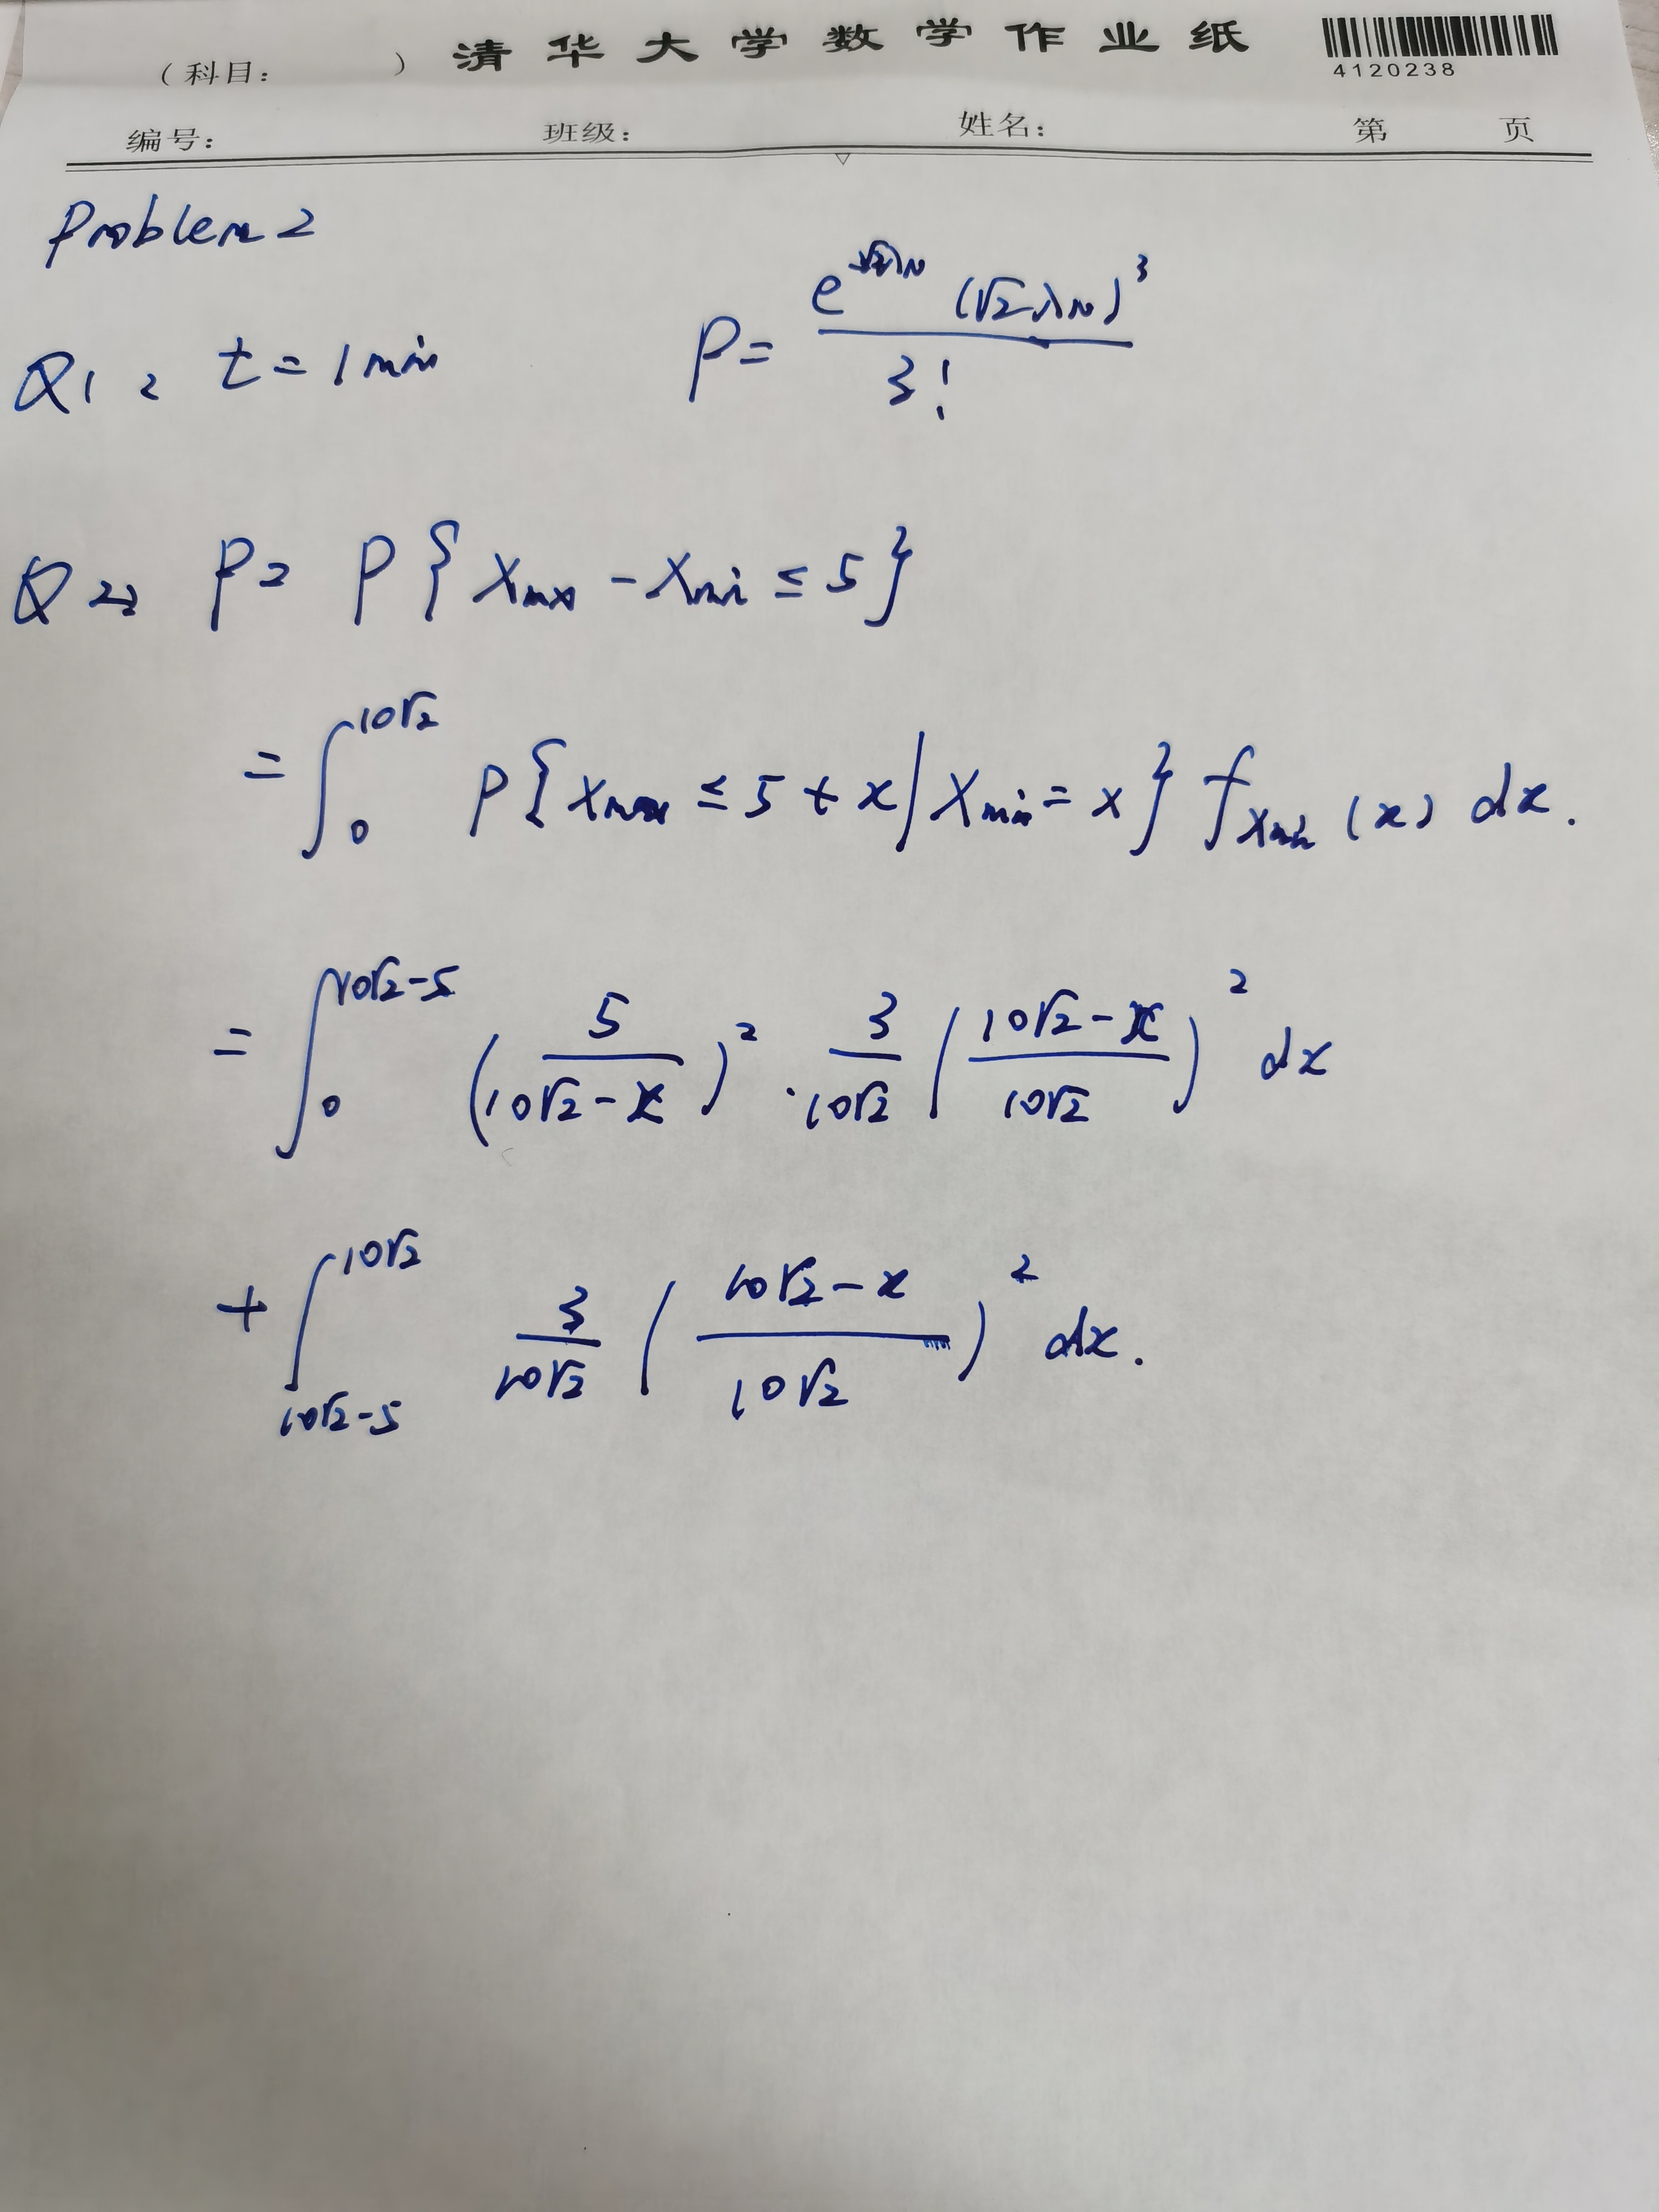 (科目: ) 清华大学数学作业纸
4120238
编号: 班级: 姓名: 第 页
Problem 2
Q1, t = 1 min P = e^{-√2λN} (√2λN)^3 / 3!
Q2, P = P{Xmax - Xmin ≤ 5}
= ∫_0^{10√2} P{Xmax ≤ 5 + x | Xmin = x} f_{Xmin}(x) dx.
= ∫_0^{10√2-5} (5 / (10√2 - x))^2 · 3/(10√2) ((10√2 - x) / (10√2))^2 dx
+ ∫_{10√2-5}^{10√2} 3/(10√2) ((10√2 - x) / (10√2))^2 dx.